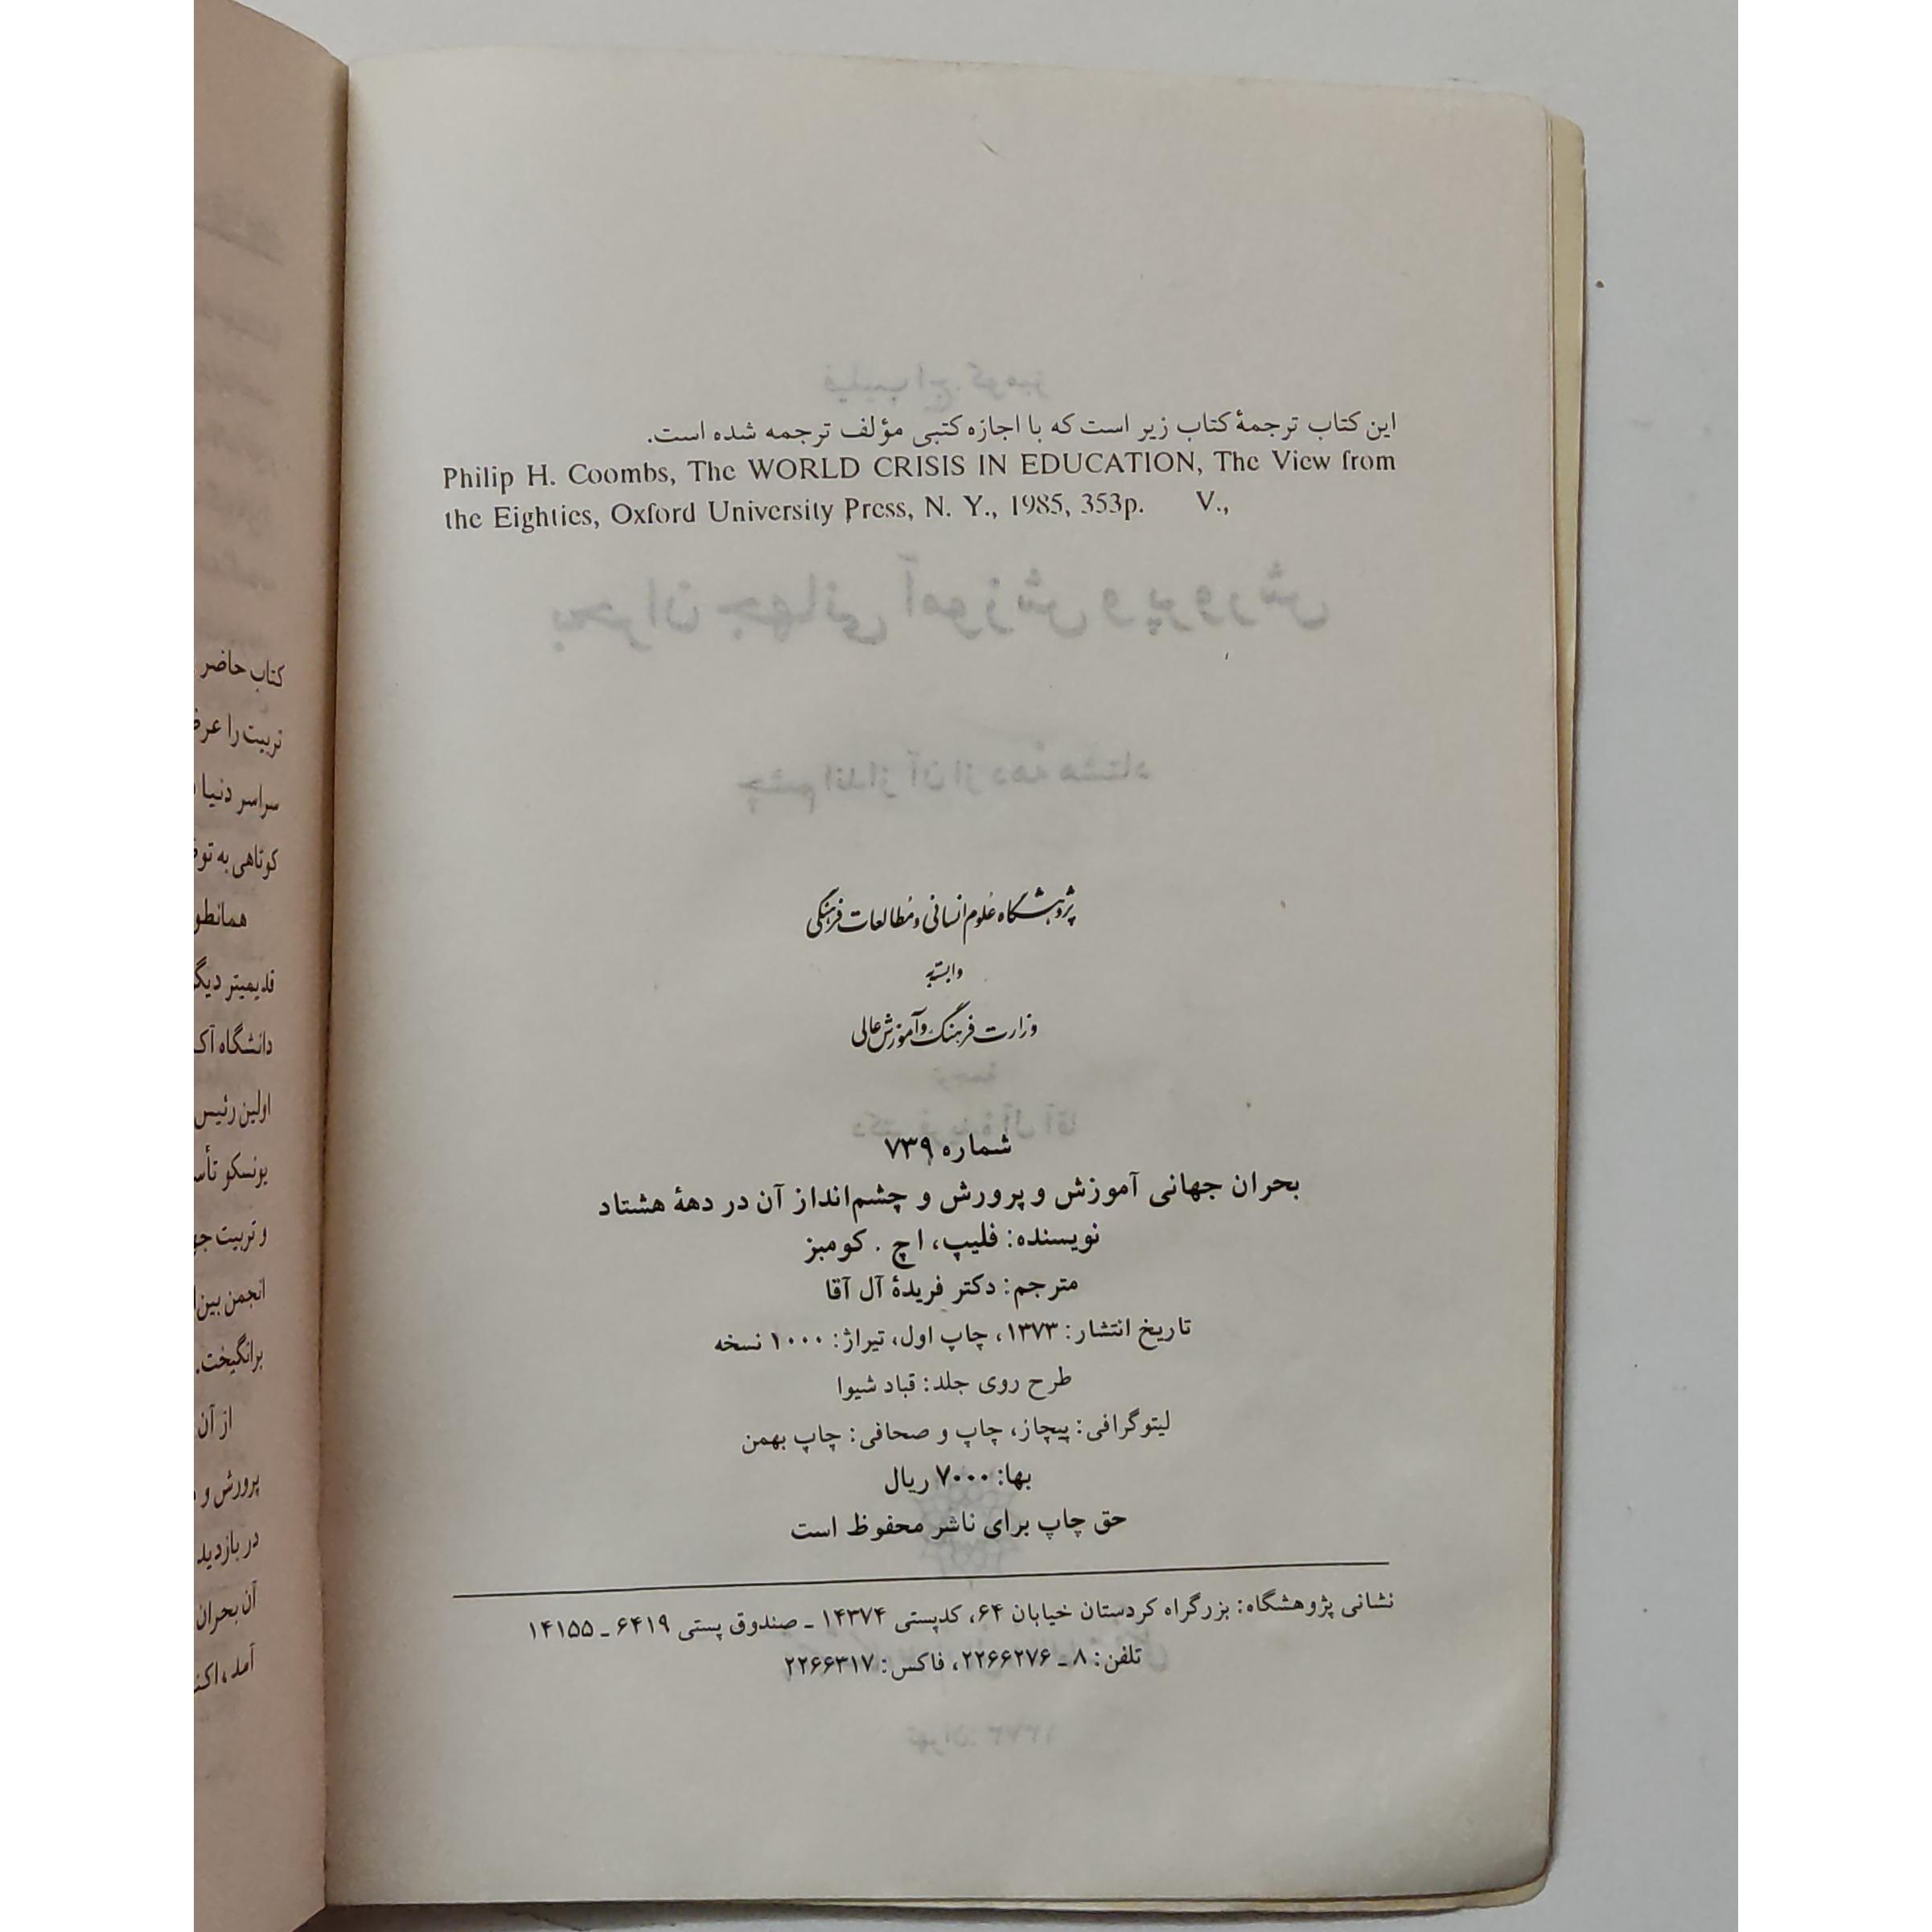 این کتاب ترجمهٔ کتاب زیر است که با اجازه کتبی مؤلف ترجمه شده است.
Philip H. Coombs, The WORLD CRISIS IN EDUCATION, The View from
the Eighties, Oxford University Press, N. Y., 1985, 353p. V.,
پژوهشگاه علوم انسانی و مطالعات فرهنگی
وابسته به
وزارت فرهنگ و آموزش عالی
شماره ۷۳۹
بحران جهانی آموزش و پرورش و چشم‌انداز آن در دههٔ هشتاد
نویسنده: فلیپ، اچ . کومبز
مترجم: دکتر فریدهٔ آل آقا
تاریخ انتشار: ۱۳۷۳، چاپ اول، تیراژ: ۱۰۰۰ نسخه
طرح روی جلد: قباد شیوا
لیتوگرافی: پیچاز، چاپ و صحافی: چاپ بهمن
بها: ۷۰۰۰ ریال
حق چاپ برای ناشر محفوظ است
نشانی پژوهشگاه: بزرگراه کردستان خیابان ۶۴، کدپستی ۱۴۳۷۴ ـ صندوق پستی ۶۴۱۹ ـ ۱۴۱۵۵
تلفن: ۸ ـ ۲۲۶۶۲۷۶، فاکس: ۲۲۶۶۳۱۷
کتاب حاضر
تربیت را
سراسر دنیا
کوتاهی به
قدیمیتر
دانشگاه
اولین رئیس
یونسکو
و تربیت
انجمن
برانگیخت.
از آن
پرورش و
در بازدید
آن بحران
آمد،